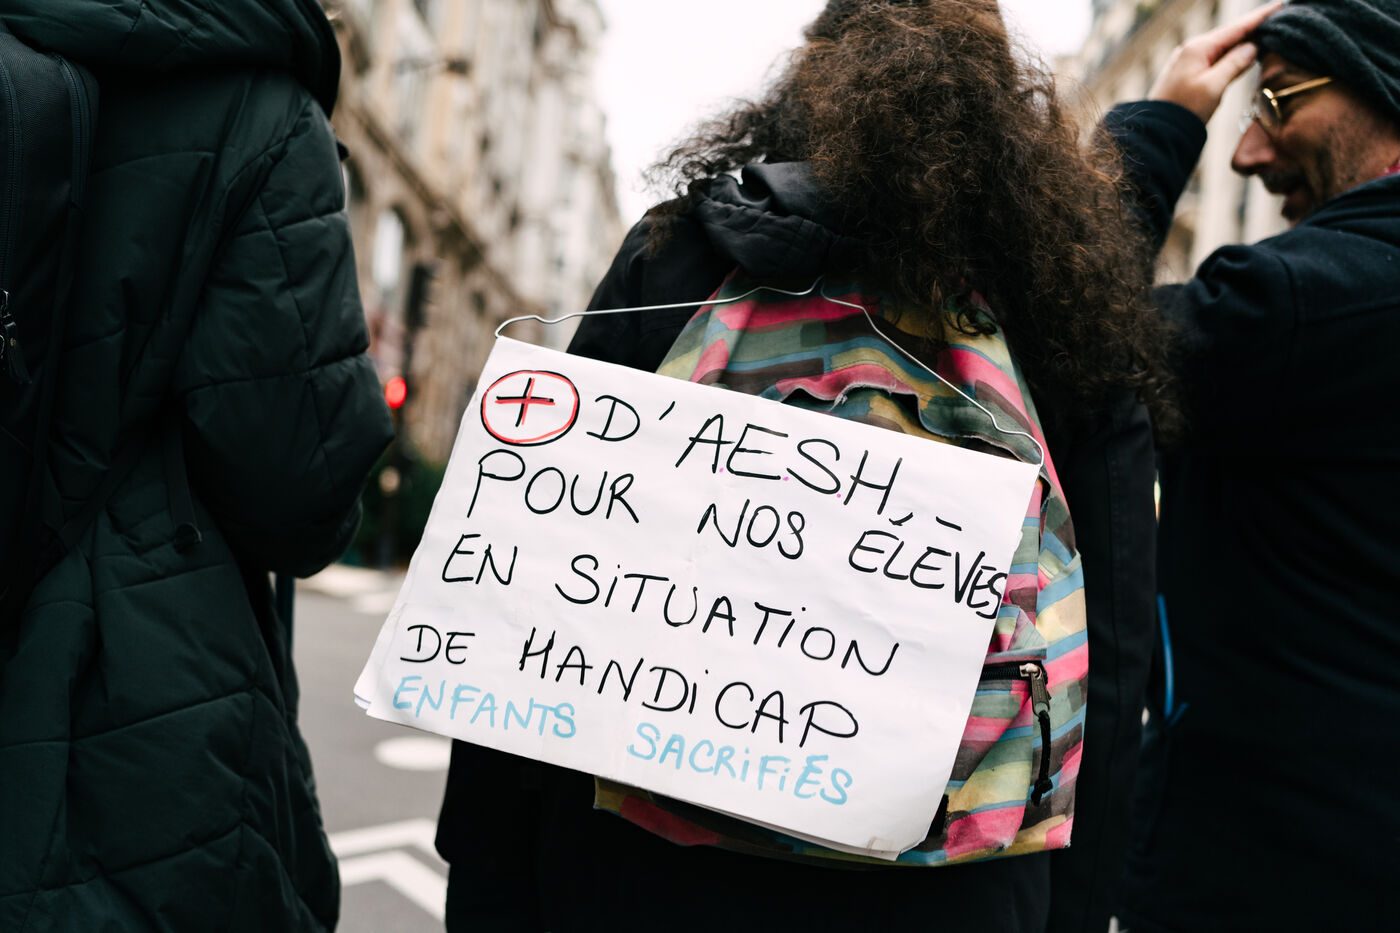 + D'A.E.S.H
POUR NOS ÉLÈVES
EN SiTUATiON
DE HANDiCAP
ENFANTS SACRiFiÉS